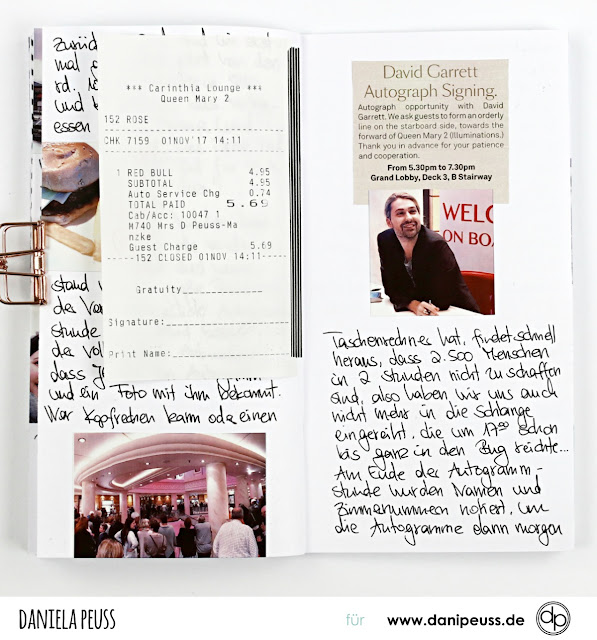 Zurück
mal
rd.
und
essen
*** Carinthia Lounge ***
Queen Mary 2
152 ROSE
CHK 7159 01NOV'17 14:11
1 RED BULL 4.95
SUBTOTAL 4.95
Auto Service Chg 0.74
TOTAL PAID 5.69
Cab/Acc: 10047 1
M740 Mrs D Peuss-Ma
nzke
Guest Charge 5.69
-----152 CLOSED 01NOV 14:11-----
Gratuity
Signature:
Print Name:
stand
der
Stunde
der
dass
und ein Foto mit ihm bekommt.
Wer Kopfrechnen kann oder einen
David Garrett
Autograph Signing.
Autograph opportunity with David
Garrett. We ask guests to form an orderly
line on the starboard side, towards the
forward of Queen Mary 2 (Illuminations.)
Thank you in advance for your patience
and cooperation.
From 5.30pm to 7.30pm
Grand Lobby, Deck 3, B Stairway
WELC
ON BOA
Taschenrechner hat, findet schnell
heraus, dass 2.500 Menschen
in 2 Stunden nicht zu schaffen
sind, also haben wir uns auch
nicht mehr in die Schlange
eingereiht, die um 17⁰⁰ schon
bis ganz in den Bug reichte...
Am Ende der Autogramm-
stunde wurden Namen und
Zimmernummern notiert, um
die Autogramme dann morgen
DANIELA PEUSS für www.danipeuss.de dp